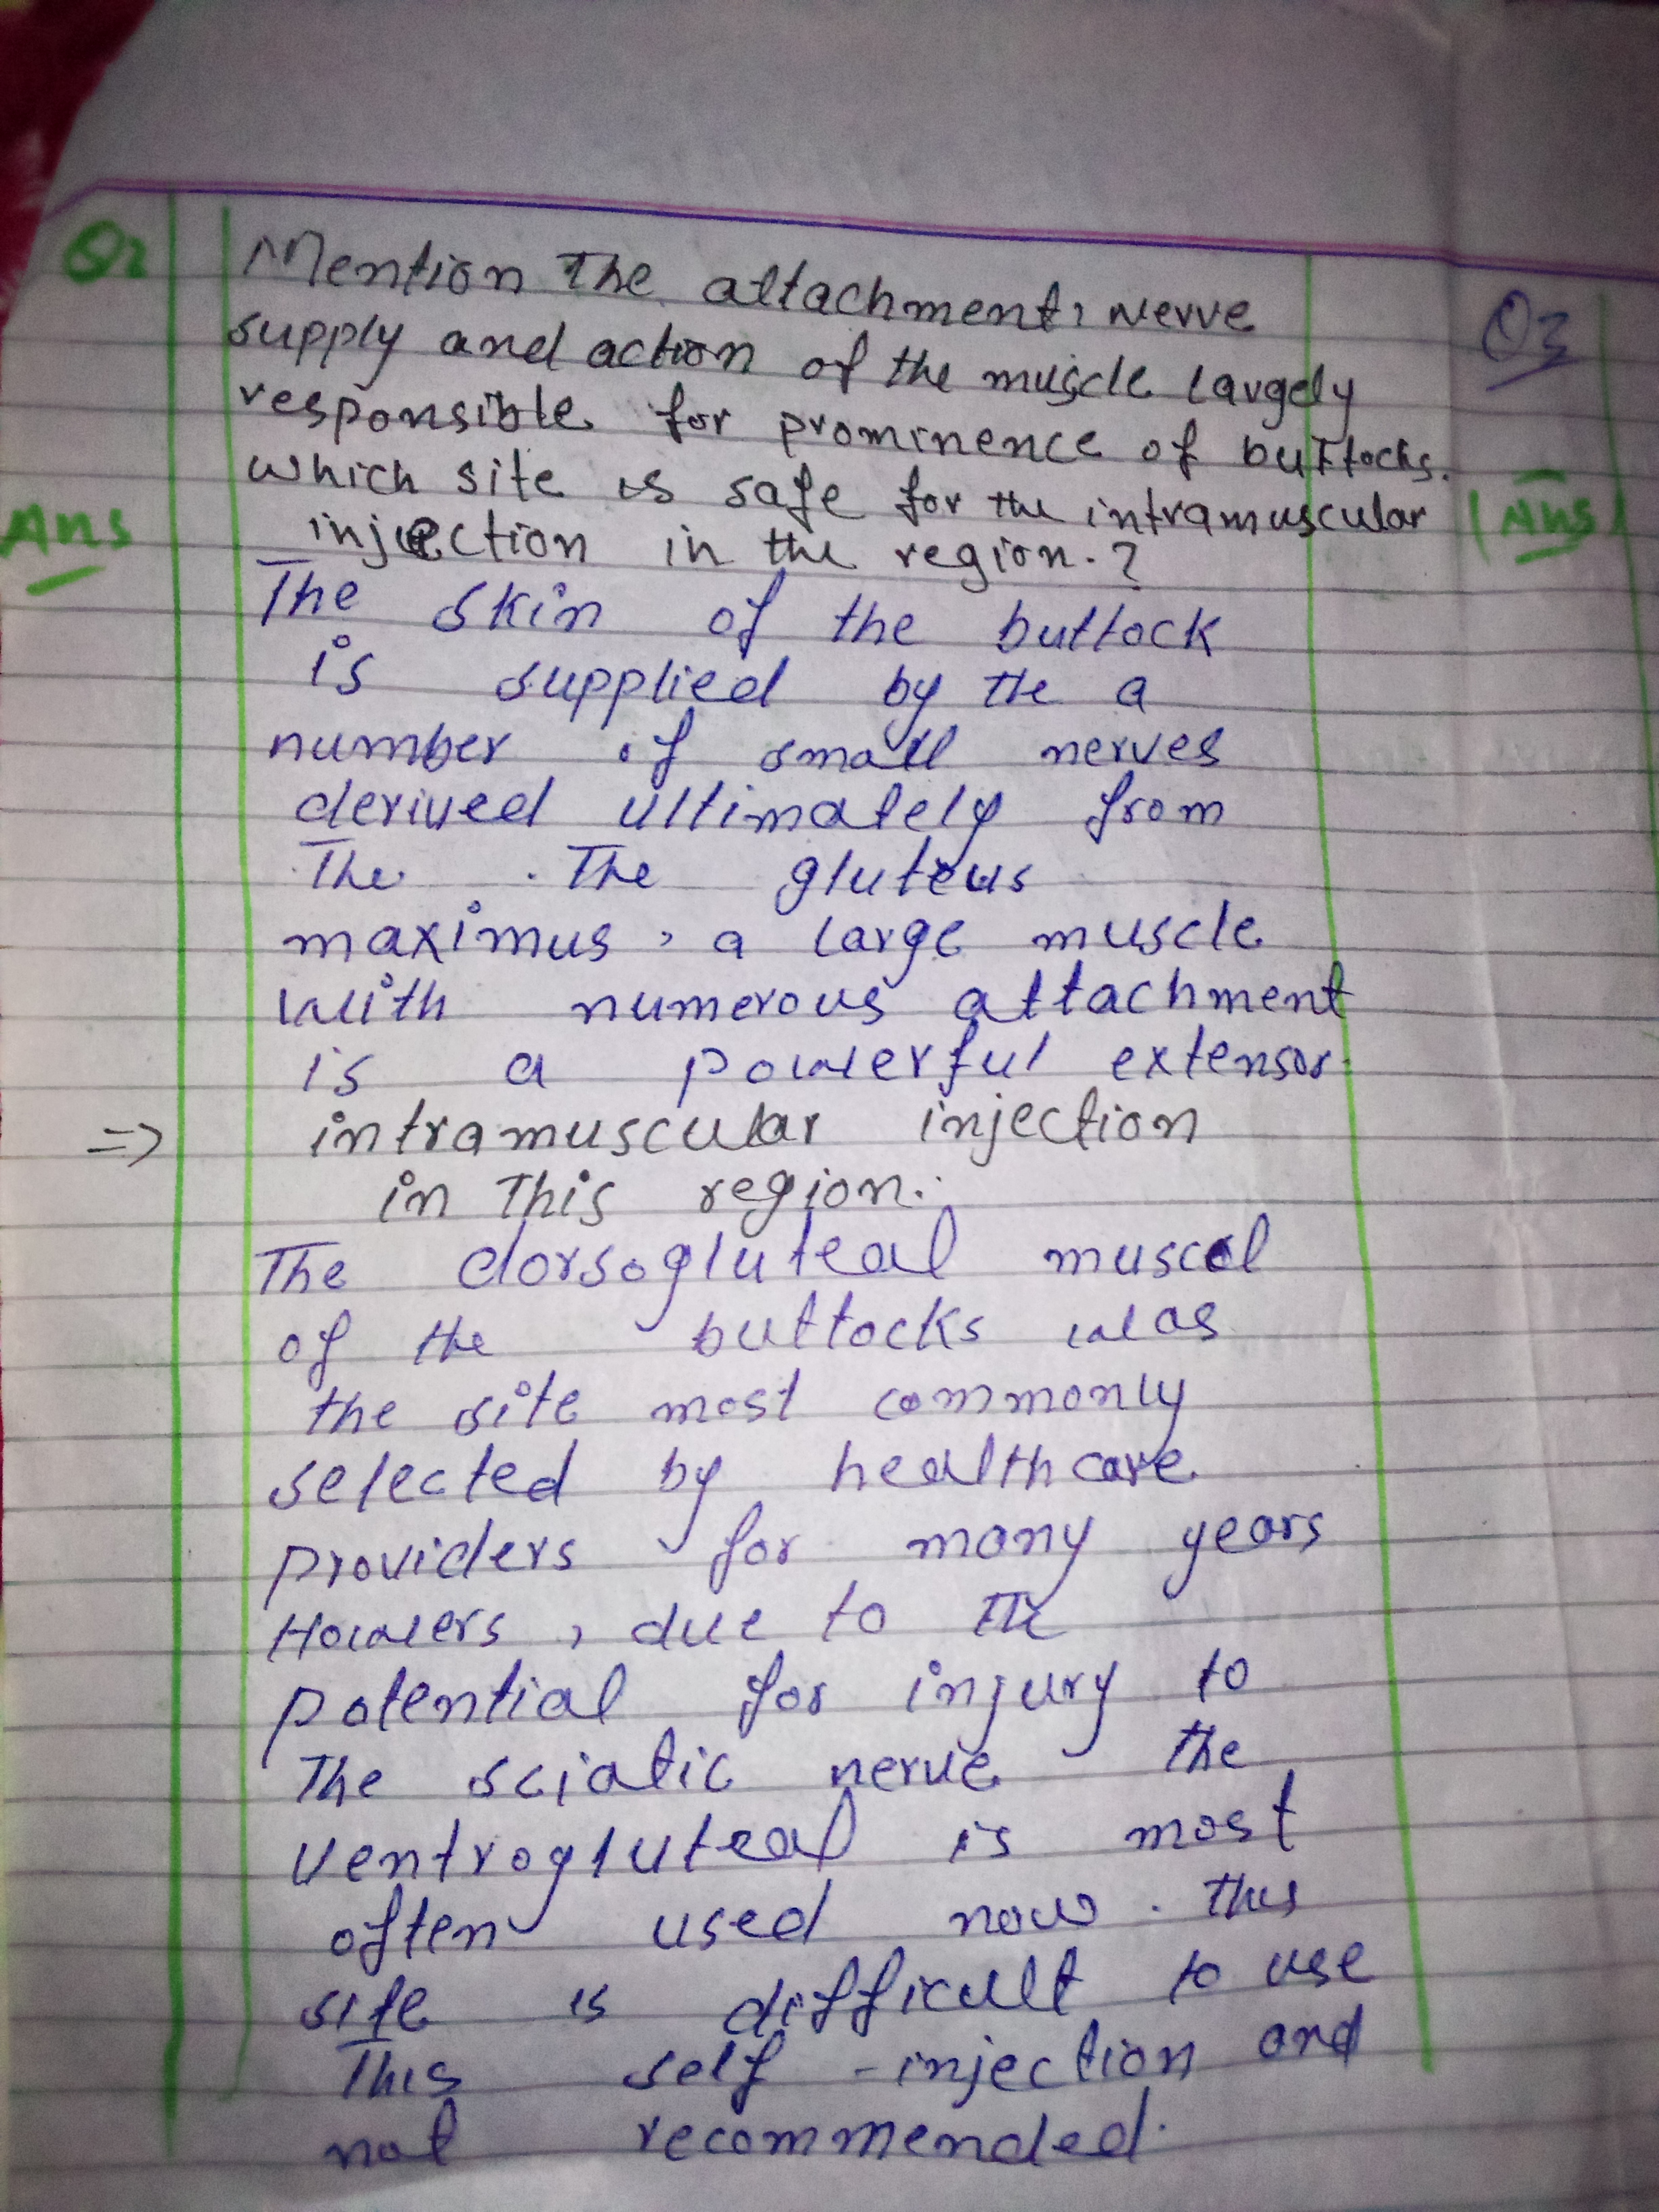 Q2
Mention The attachment, Nerve
supply and action of the muscle largely
responsible for prominence of buttocks.
which site is safe for the intramuscular
injection in the region.?
Ans
The skin of the buttock
is supplied by the a
number of small nerves
derived ultimately from
The . The gluteus
maximus, a large muscle
with numerous attachment
is a powerful extensor.
=> intramuscular injection
in This region.
The dorsogluteal muscel
of the buttocks was
the site most commonly
selected by healthcare
providers for many years
Howers, due to The
potential for injury to
The sciatic nerve the
ventrogluteal is most
often used now. This
site is difficult to use
This self-injection and
not recommended.
Q3
Ans